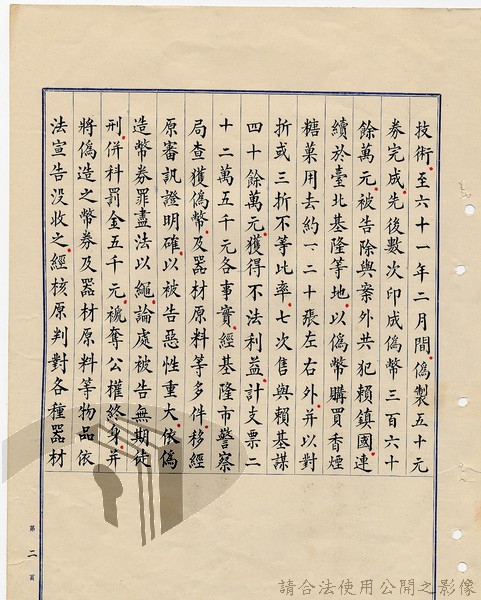 技術。至六十一年二月間。偽製五十元
券完成。先後數次印成偽幣三百六十
餘萬元。被告除與案外共犯賴鎮國。連
續於臺北基隆等地。以偽幣購買香煙
糖菓用去約一、二十張左右外。并以對
折或三折不等比率。七次售與賴基謀
四十餘萬元。獲得不法利益。計支票二
十二萬五千元各事實。經基隆市警察
局查獲偽幣。及器材原料等多件。移經
原審訊證明確。以被告惡性重大。依偽
造幣券罪盡法以繩。論處被告無期徒
刑。併科罰金五千元。褫奪公權終身。并
將偽造之幣券及器材原料等物品依
法宣告没收之。經核原判對各種器材
第二頁
請合法使用公開之影像